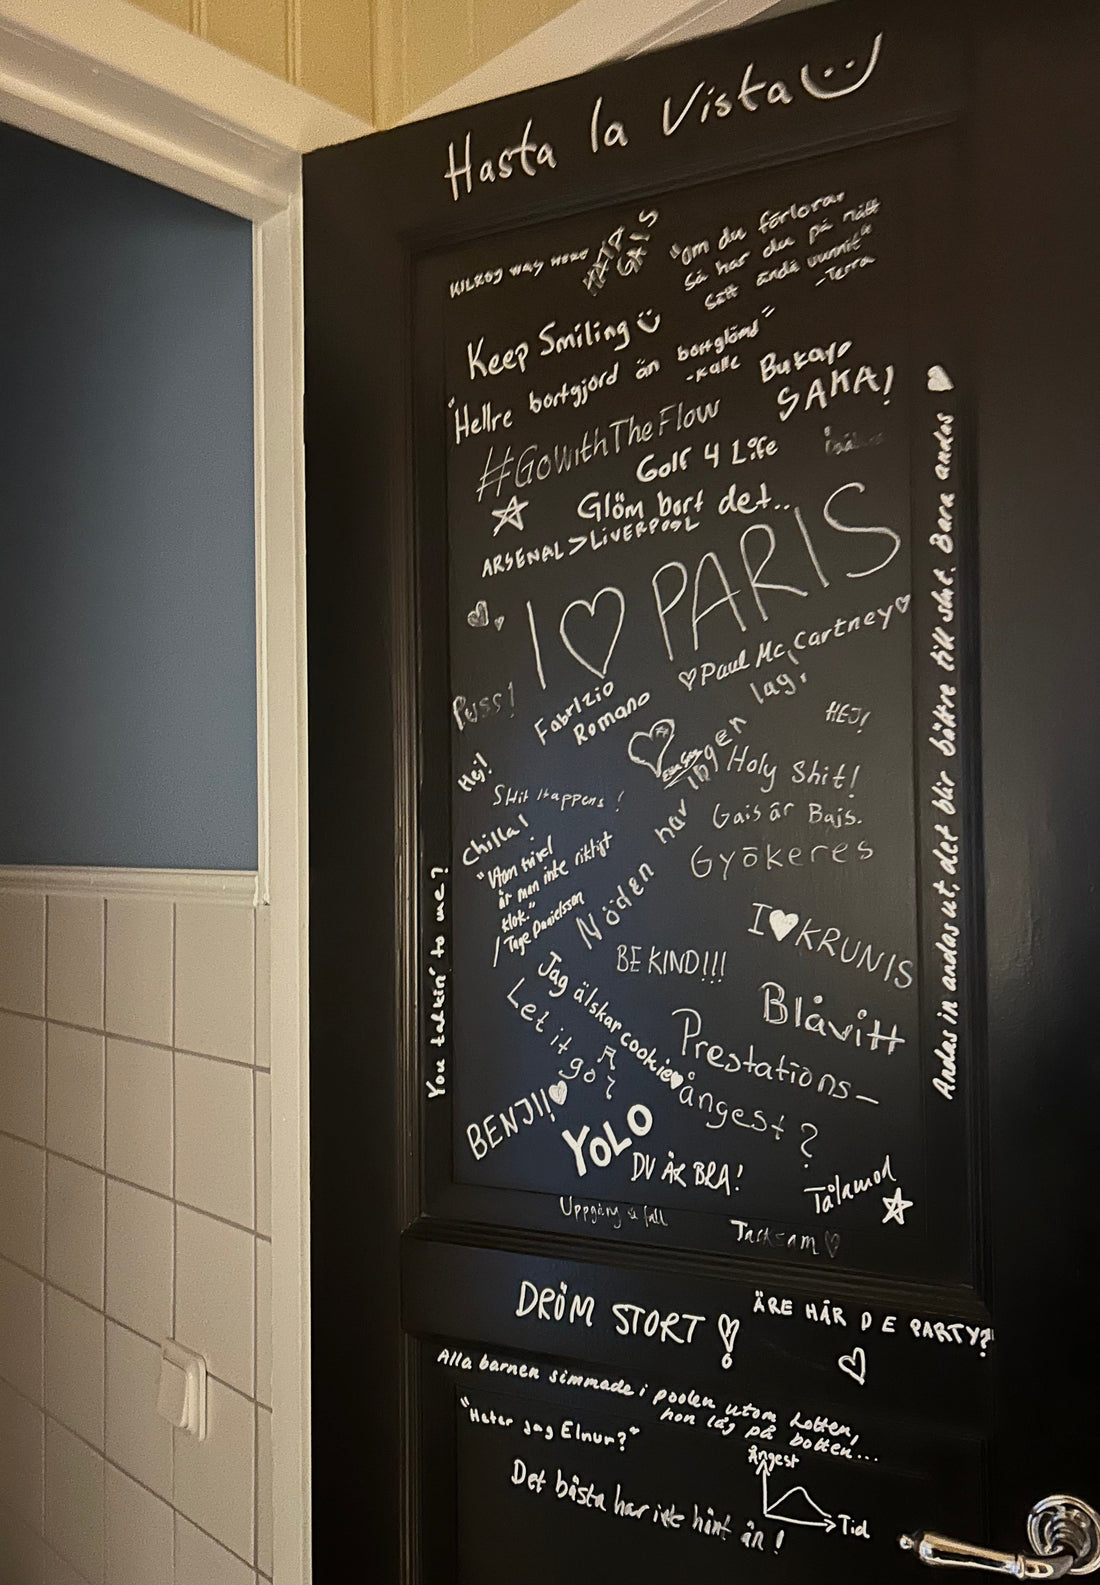 Hasta la Vista
KILROY WAS HERE
HATA
GAIS
"Om du förlorar
så har du på nått
sätt ändå vunnit"
-Terra
Keep Smiling
"Hellre bortgjord än bortglömd"
-Kalle
Bukayo
SAKA!
#GoWithTheFlow
Golf 4 Life
Glöm bort det...
ARSENAL>LIVERPOOL
I ♡ PARIS
♡Paul McCartney♡
Puss!
Fabrizio
Romano
HEJ!
Hej!
Nöden har ingen lag!
Holy Shit!
Shit Happens!
Gais är Bajs.
Chilla!
Gyökeres
"Utan tvivel
är man inte riktigt
klok."
/Tage Danielsson
You talkin' to me?
Andas in andas ut, det blir bättre till slut. Bara andas ♥
I♥KRUNIS
BE KIND!!!
Jag älskar cookie♥
Let it go
Blåvitt
Prestations-
ångest?
BENJI!♥
YOLO
DU ÄR BRA!
Tålamod
Uppgång & fall
Tacksam♡
DRÖM STORT!
ÄRE HÄR DE PARTY?
Alla barnen simmade i poolen utom Lotten,
hon låg på botten...
"Heter jag Elnur?"
Ångest
Tid
Det bästa har inte hänt än!